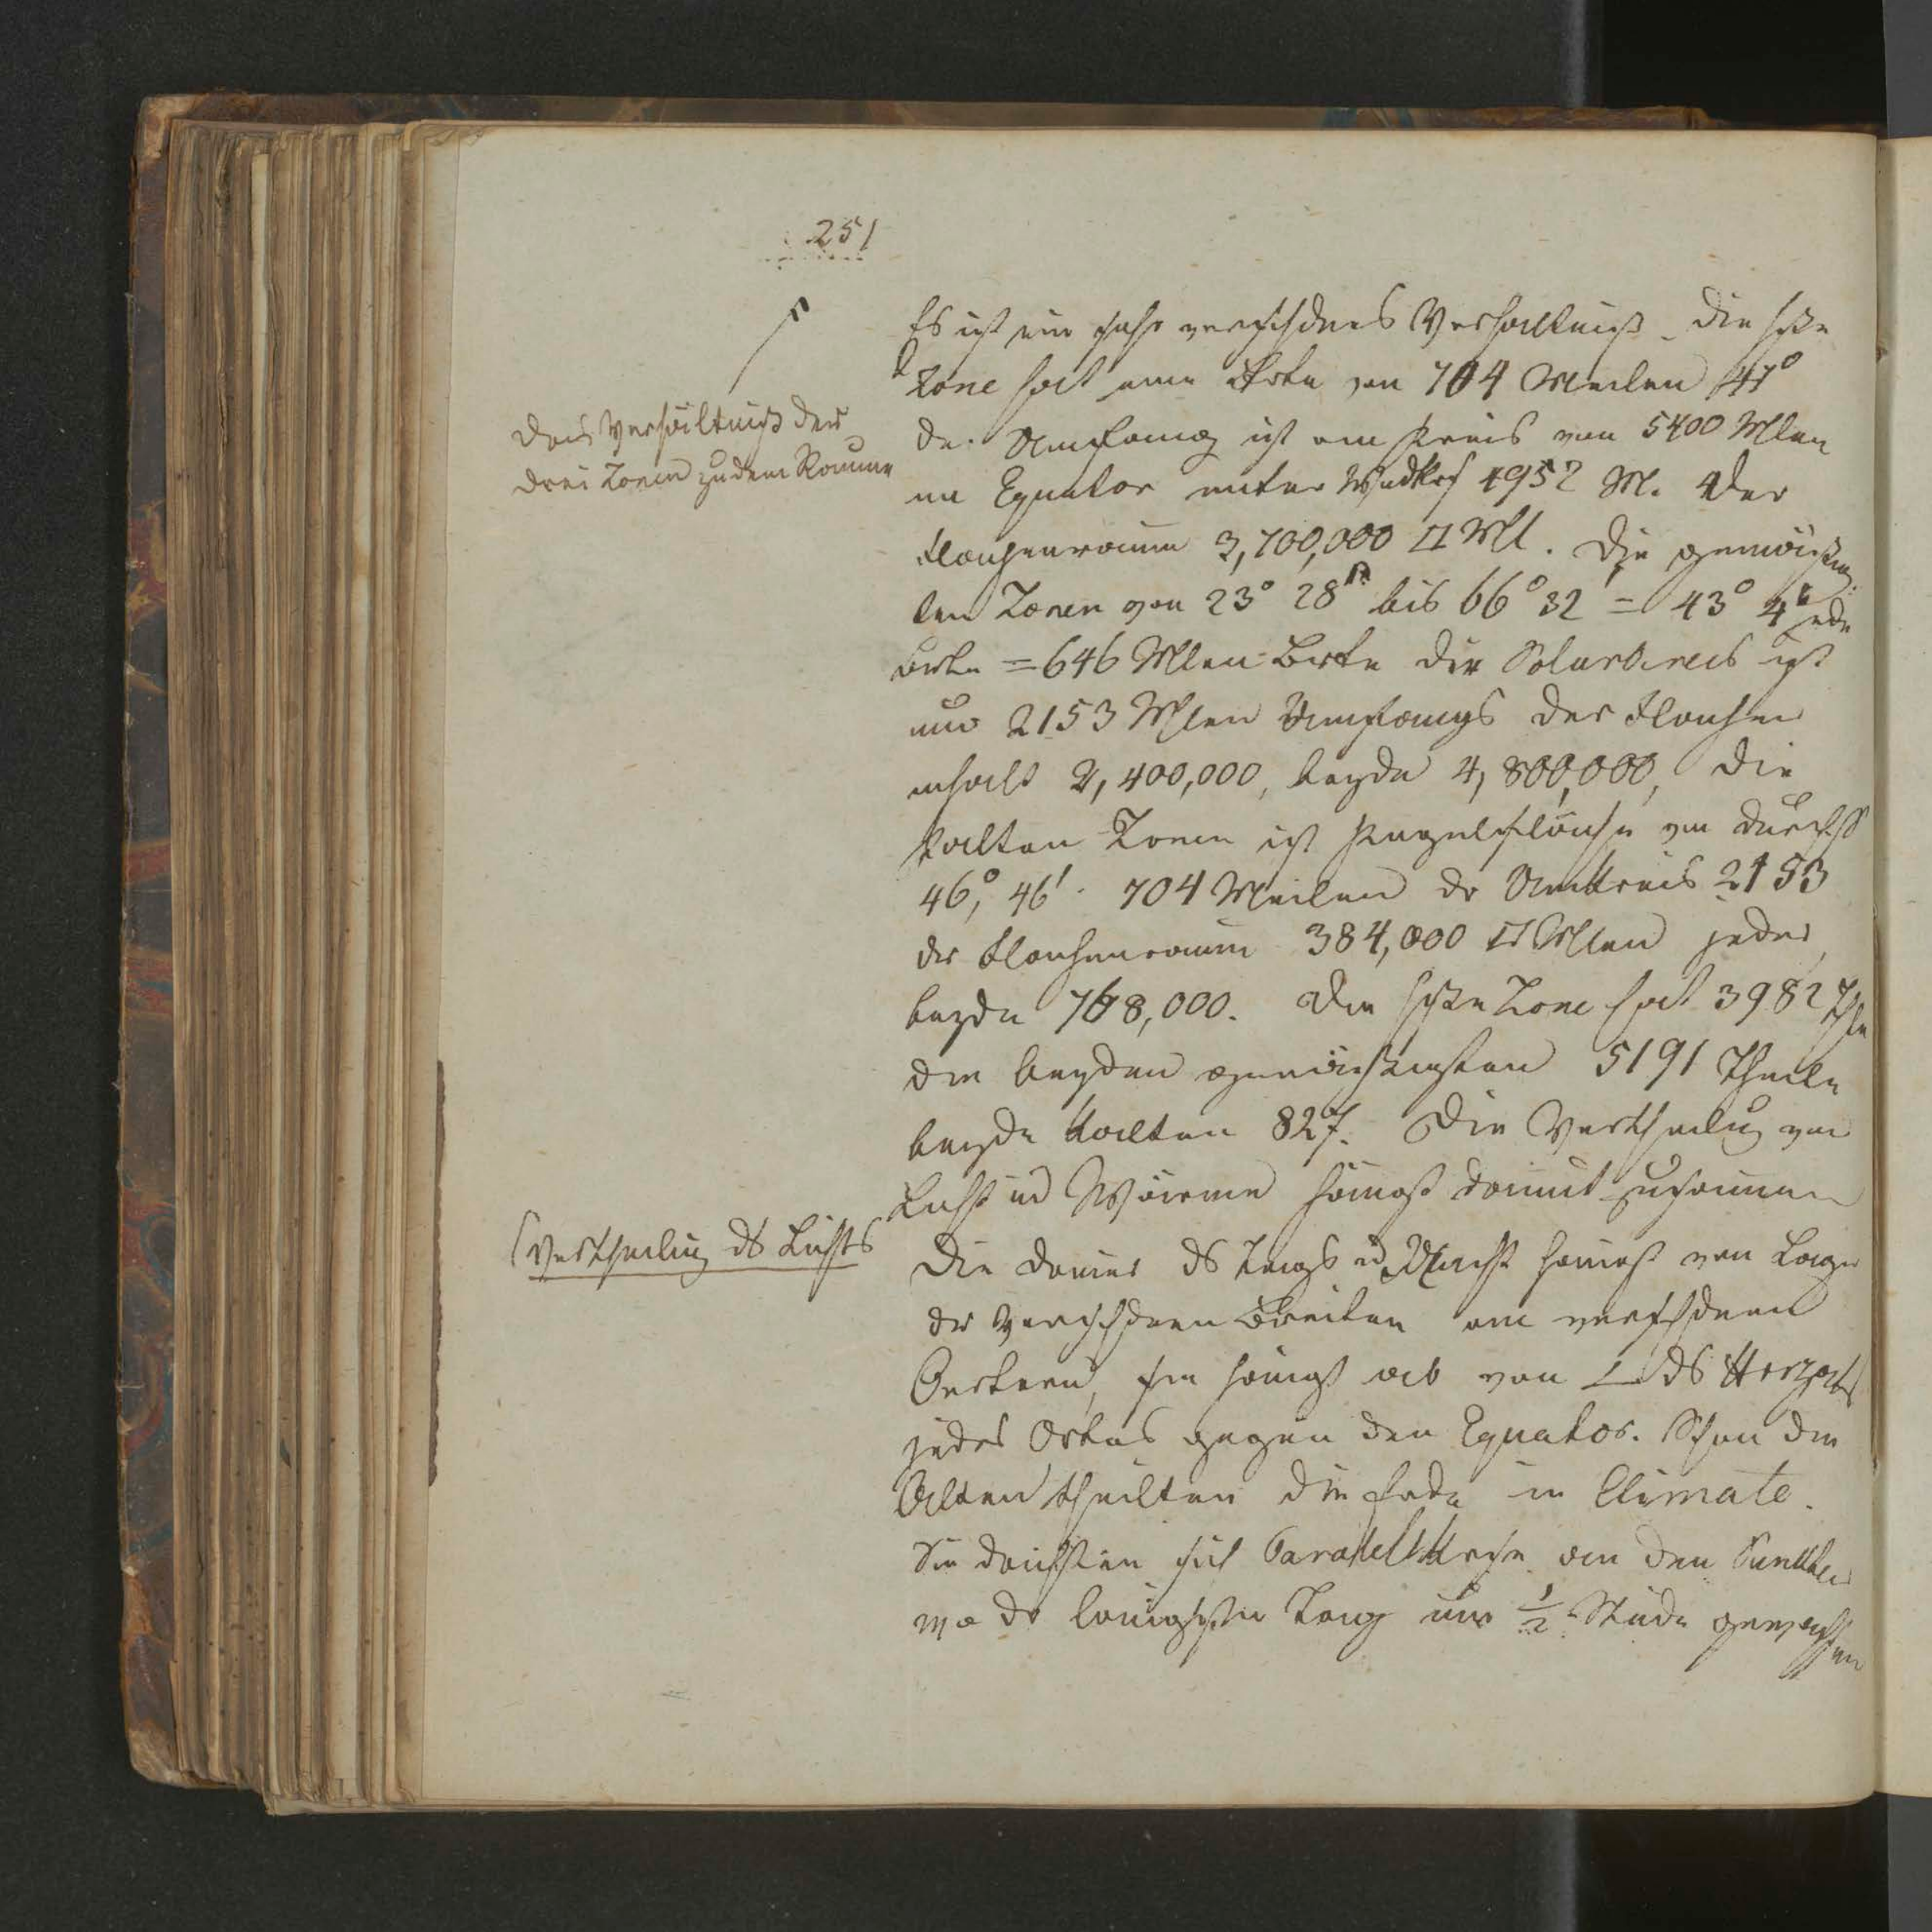 251
Das Verhältniß der
drei Zonen zu dem Raume
Es ist ein sehr verschdnes Verhältniß. Die heße
Zone hat eine Brte von 704 Meilen 47°
der Umfang ist am Kreis von 5400 Mlen
im Equator unter Wndkrs 4952 M. Der
Flachenraum 3,700,000 □ Ml. Die gemäßig
ten Zonen von 23° 28' bis 66° 32' = 43° 4'
Brte = 646 Mlen Brte der Polarkreis ist
nur 2153 Mlen Umfangs der Flachen
inhalt 2,400,000, beyde 4,800,000, Die
kalten Zonen ist Kugelfläche von Durchss
46°, 46' 704 Meilen dr Umkreis 2153
der Flachenraum 384,000 □ Mlen jeder
beyde 768,000. Die heße Zone hat 3982 Thle
die beyden gemäßigsten 5191 Theile
beyde kalten 827. Die Vertheilung von
Licht ud Wärme hängt damit zusammen
Vertheilung ds Lichts
Die Dauer ds Tags ud Nacht hängt von Lage
der verschdnen Breiten an verschdnen
Oertern, sie hängt ab von ∠ ds Horzots
jedes Ortes gegen den Equator. Schon die
Alten theilten die Erde in Climate.
Sie dachten sich Parallelkrese an den Punkten
wo dr längste Tag um ½ Stude gewachsen